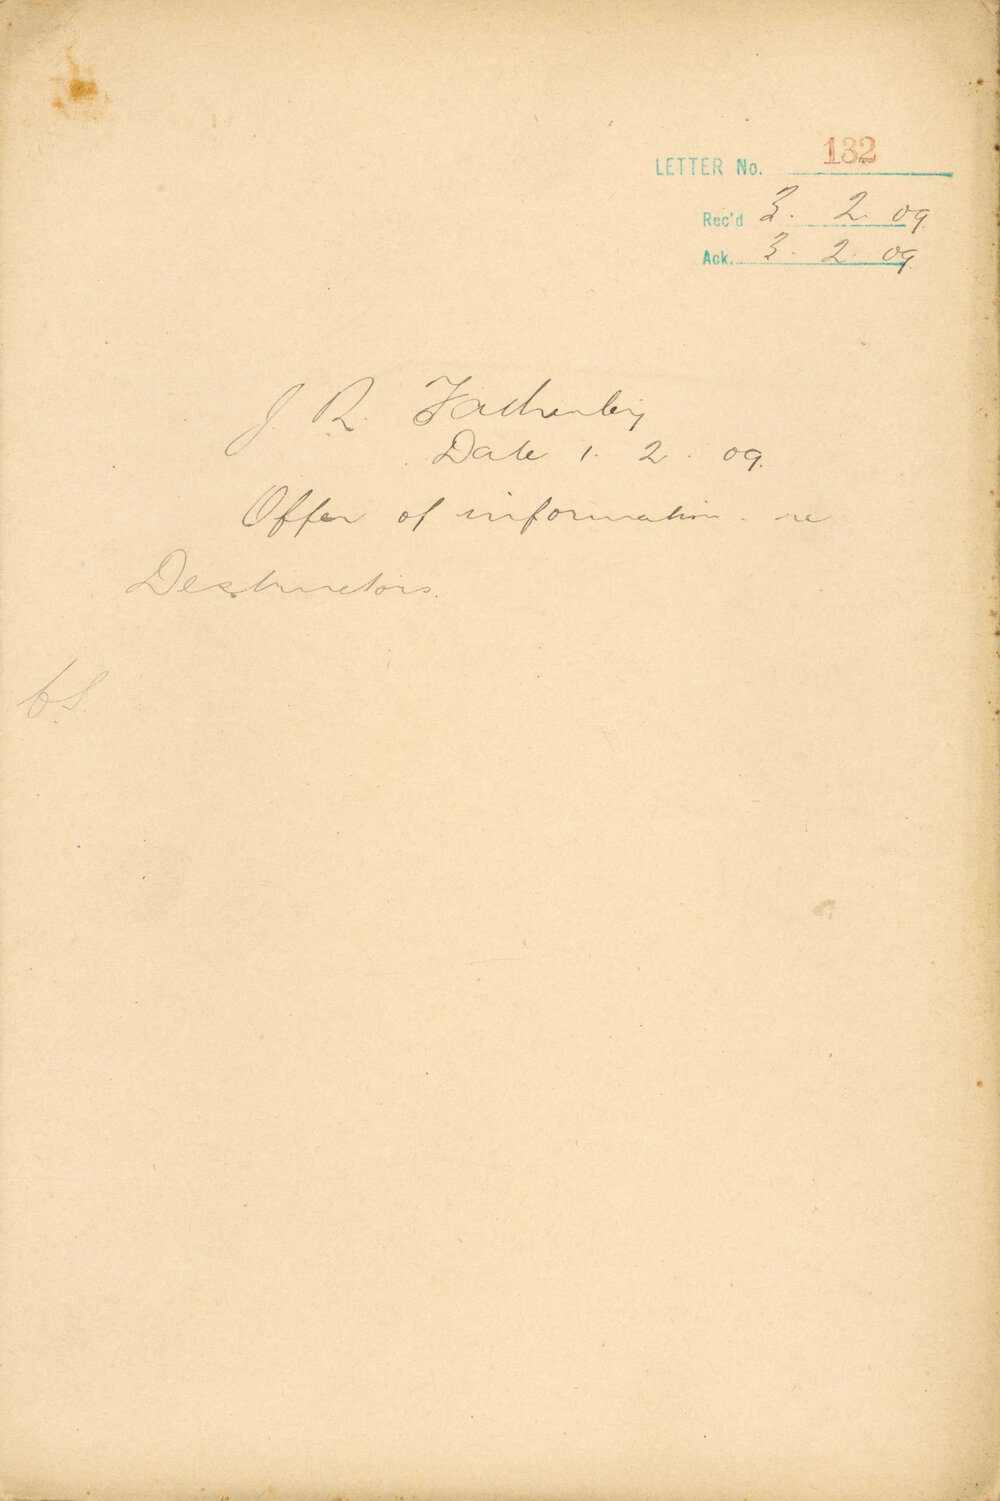 LETTER No. 132
Rec'd 3. 2. 09.
Ack. 3. 2. 09.
J. R.
Date 1. 2. 09.
Offer of information re
Destructors.